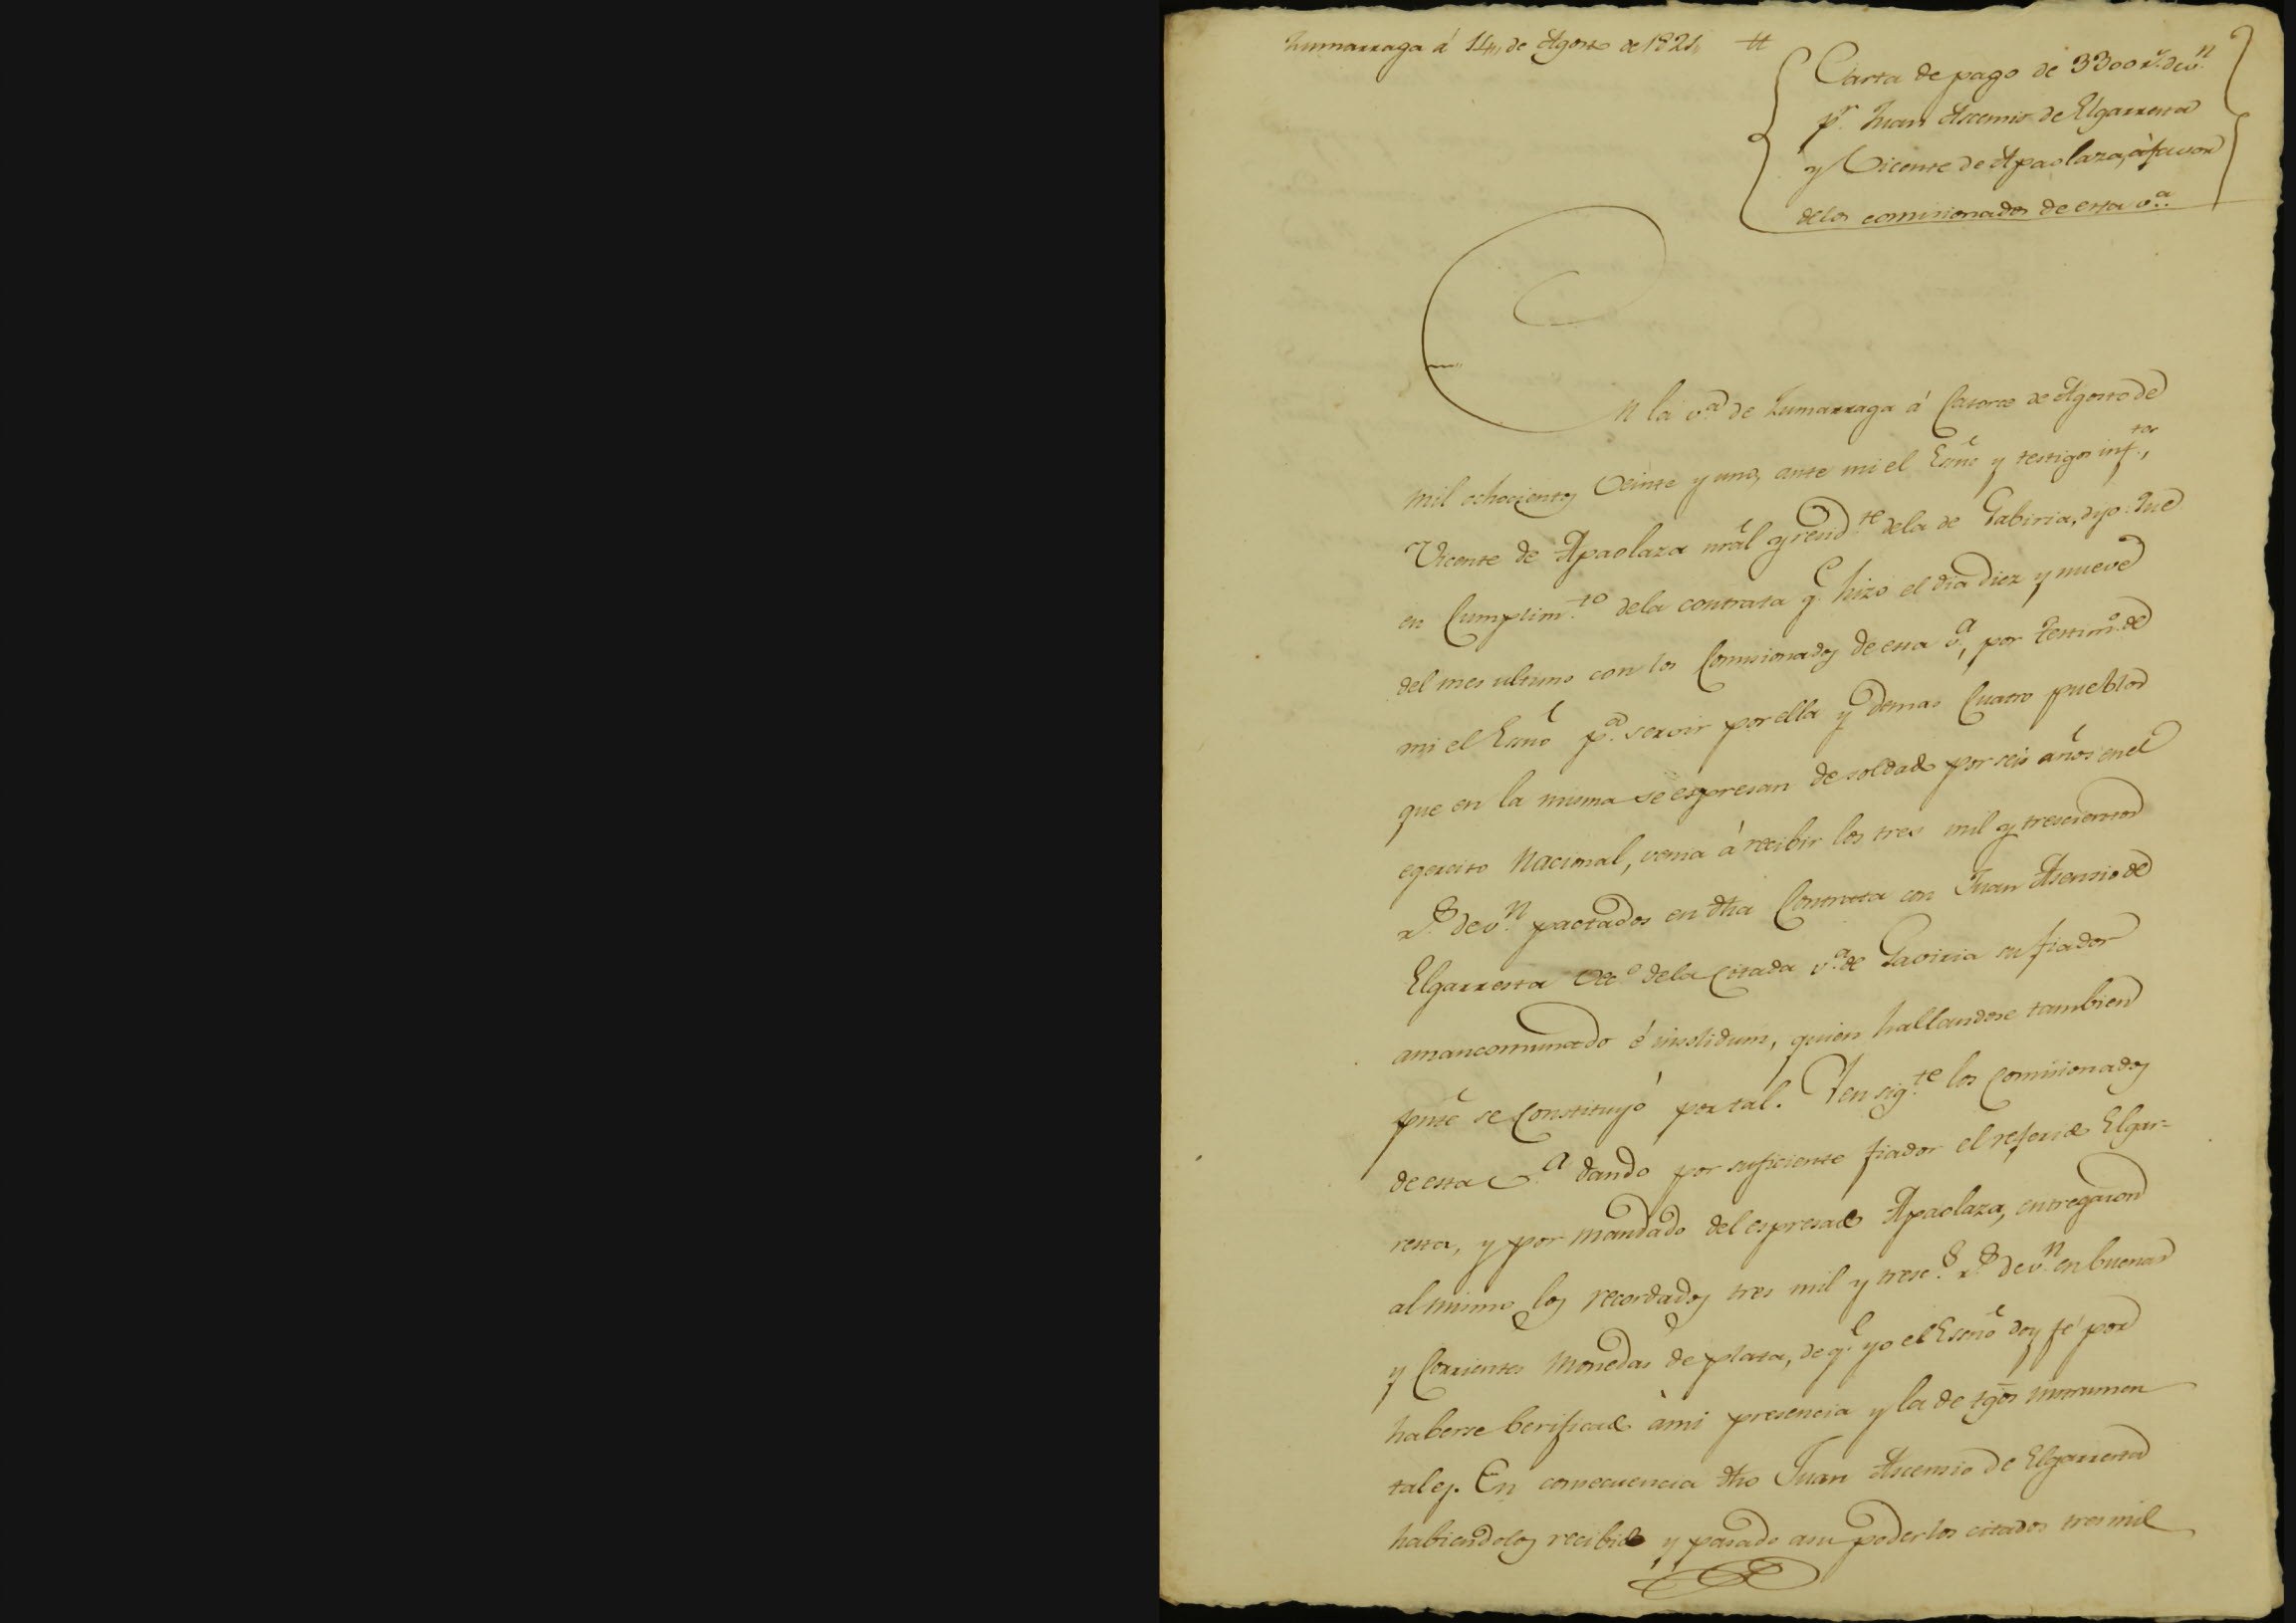 Zumarraga á 14,, de Agosto de 1821,, tt
Carta de pago de 3300 rs. de vn.
pr. Juan Ascensio de Elgarresta
y Vicente de Apaolaza, á favor
delos comisionados de esta va.
En la va. de Zumarraga á Catorce de Agosto de
mil ochocientos veinte y uno, ante mi el Esno y testigos inftos.,
Vicente de Apaolaza nral y residte. dela de Gabiria, dijo: Que
en Cumplimto. dela contrata q. hizo el dia diez y nueve
del mes ultimo con los Comisionados de esta va., por testimo. de
mi el Esno pa. servir por ella y demas Cuatro pueblos
que en la misma se espresan de soldado por seis años en el
egercito Nacional, venia á recibir los tres mil y trescientos
rs. de vn. pactados en dha Contrata con Juan Asensio de
Elgarresta veco. dela Citada va. de Gaviria su fiador
amancomunado é insolidum, quien hallandose tambien
pnte se Constituyó por tal. Y en sigte. los Comisionados
de esta va. dando por suficiente fiador el referido Elgar=
resta, y por mandado del espresado Apaolaza, entregaron
al mismo los recordados tres mil y tresc.s rs. de vn. en buenas
y Corrientes Monedas de plata, de q. yo el Esno doy fé por
haberse berificado á mi presencia y la de tgos instrumen
tales. En consecuencia dho Juan Ascensio de Elgarresta
habiendolos recibido y pasado a su poder los citados tres mil